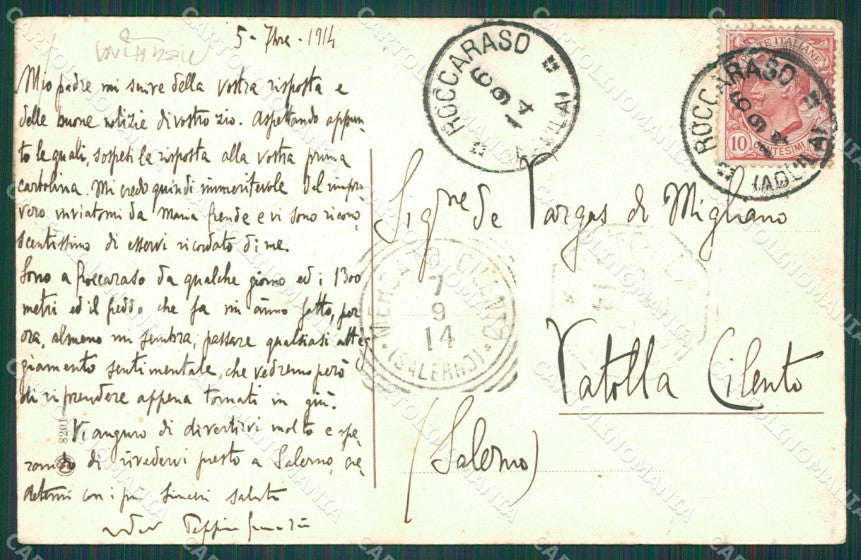 5 - 7bre - 1914
Mio padre mi scrive della vostra risposta e
delle buone notizie di vostro zio. Aspettando appun-
to le quali, sospesi la risposta alla vostra prima
cartolina. Mi credo quindi immeritevole del improv-
vero inviatomi da Maria e vi sono ricono-
scentissimo di esservi ricordato di me.
Sono a Roccaraso da qualche giorno ed i 1300
metri ed il freddo che fa mi ànno fatto, per
ora, almeno mi sembra, passare qualsiasi atteg-
giamento sentimentale, che vedremo però
di riprendere appena tornati in giù.
Vi auguro di divertirvi molto e spe-
rando di rivedervi presto a Salerno, cre-
detemi con i più sinceri saluti
Peppino
8201
ROCCARASO
6 9 14
(AQUILA)
ROCCARASO
6 9 14
(AQUILA)
POSTE ITALIANE
10
CENTESIMI
Sig.ne de Vargas di Migliano
MERCATO CILENTO
7
9
14
(SALERNO)
Vatolla Cilento
(Salerno)
CARTOLINOMANIA